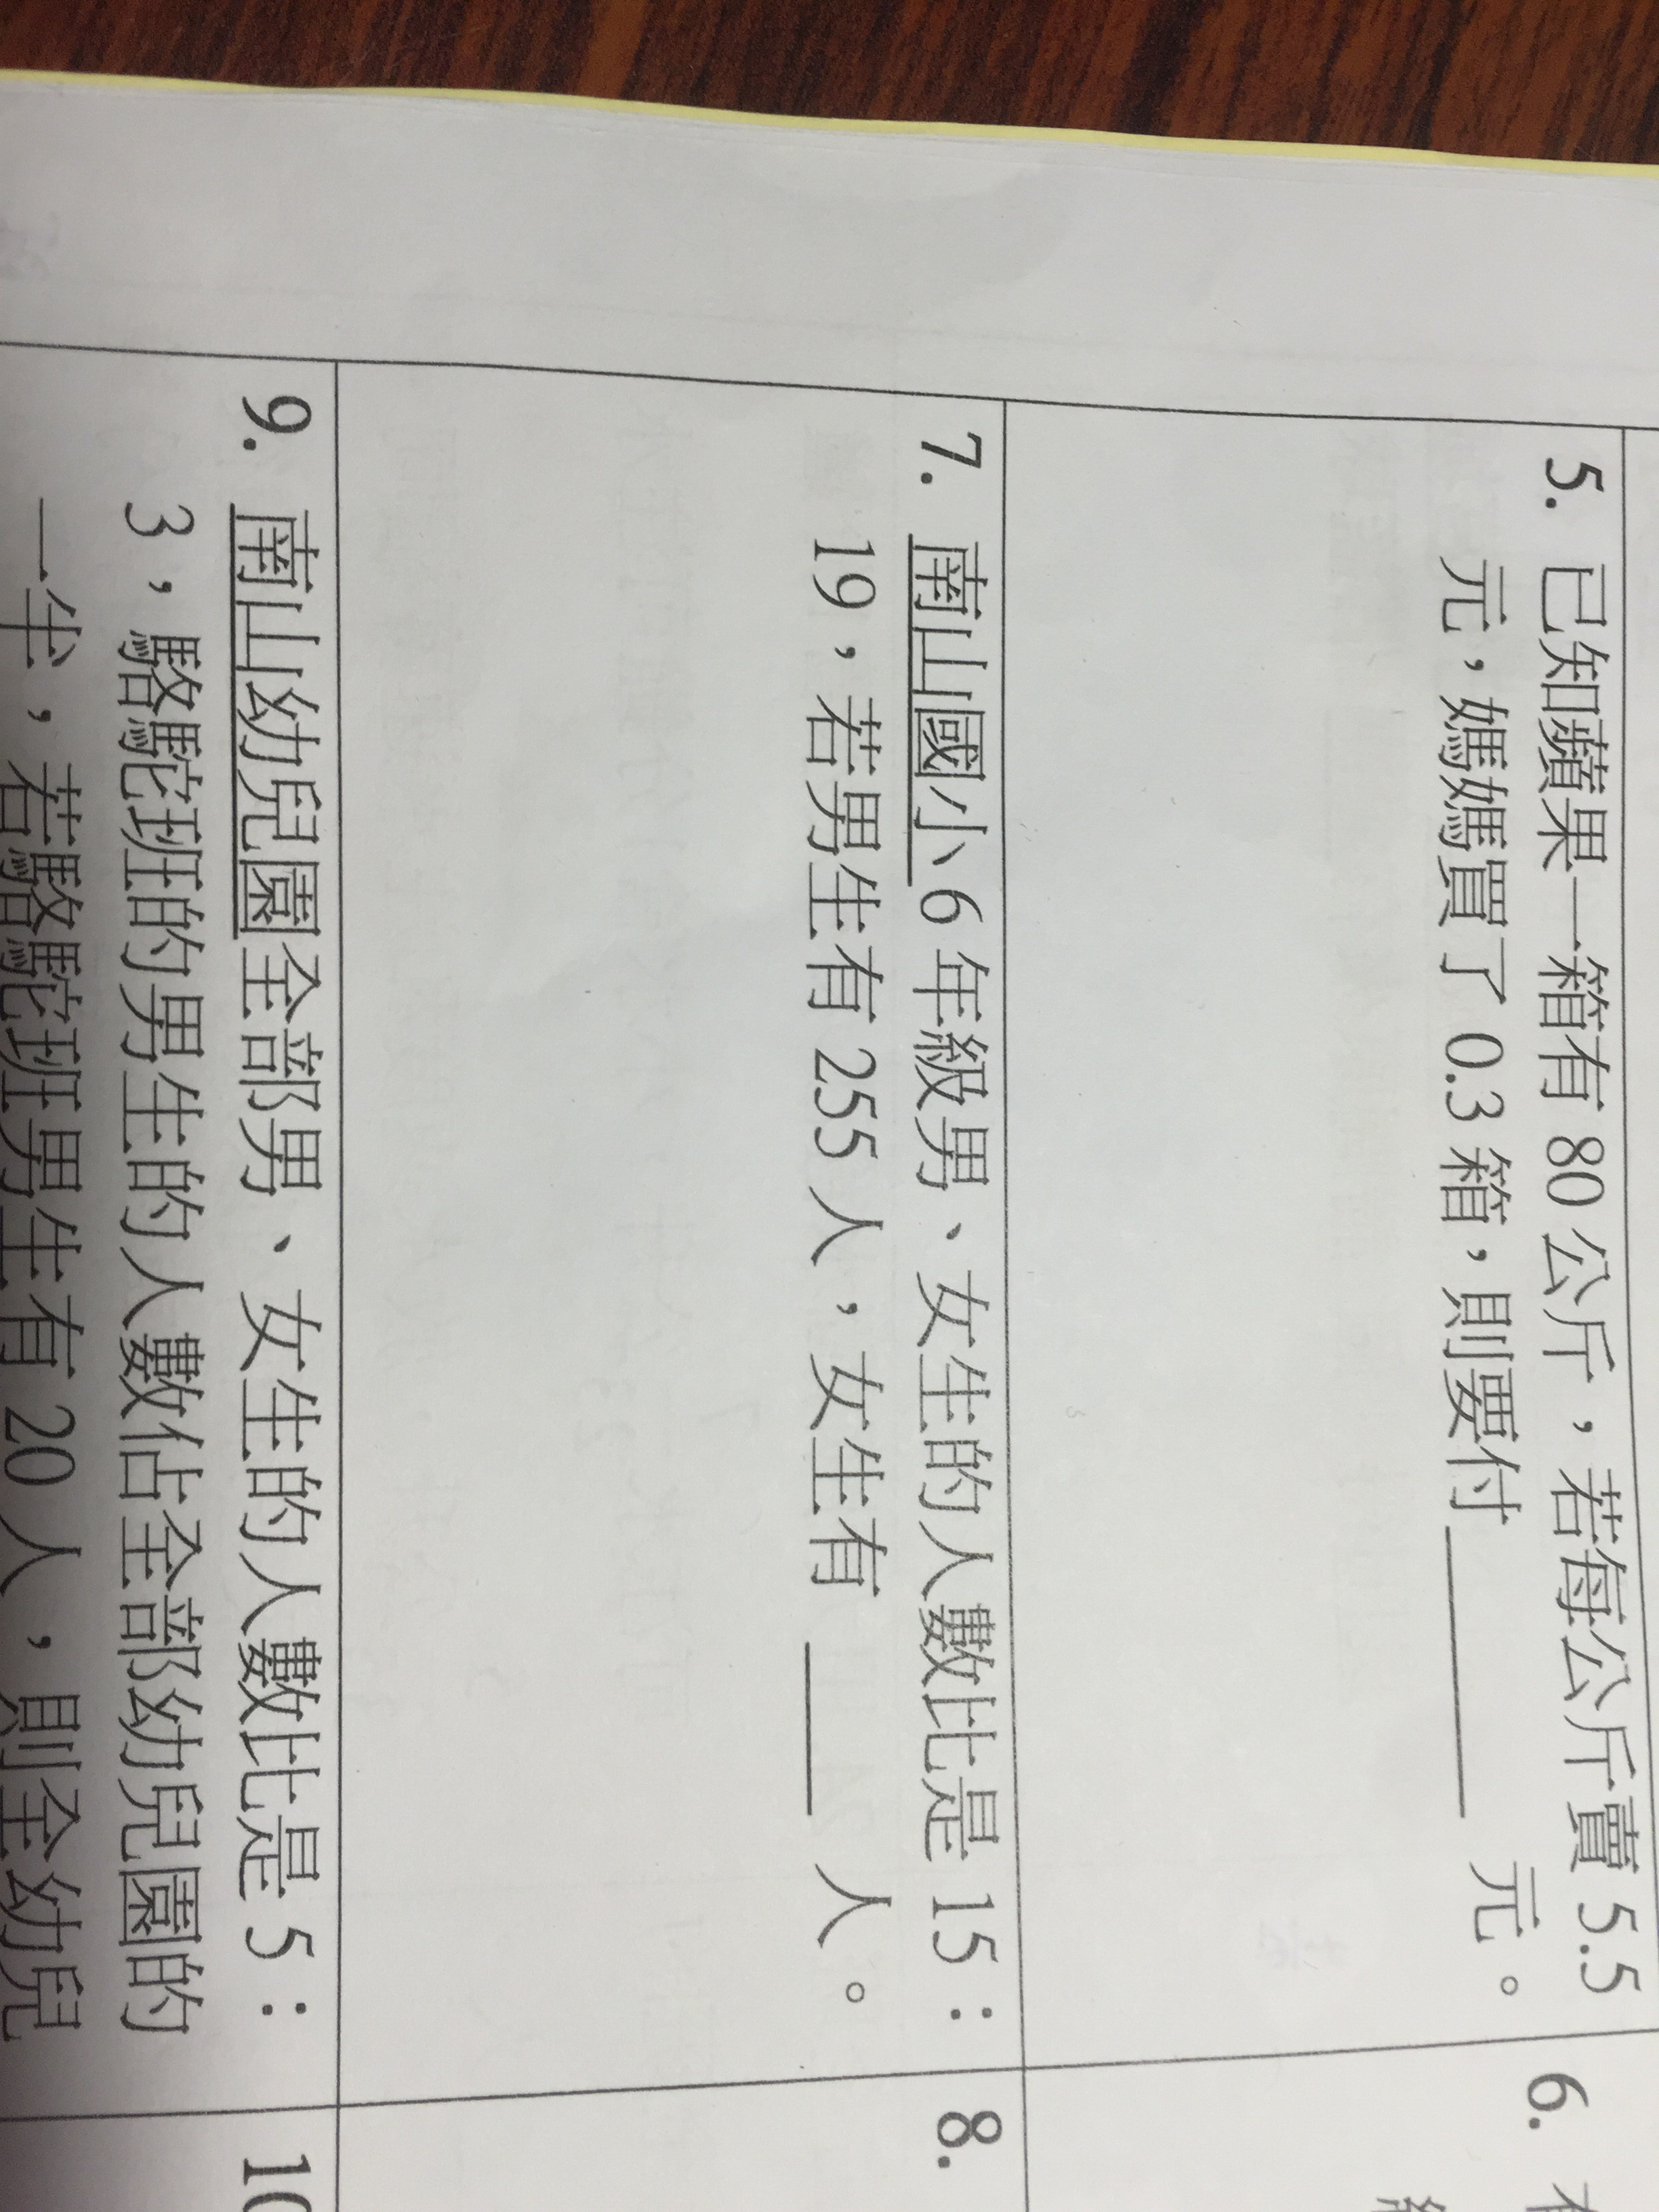 5. 已知蘋果一箱有 80 公斤，若每公斤賣 5.5
元，媽媽買了 0.3 箱，則要付＿＿＿＿元。
6.
7. 南山國小 6 年級男、女生的人數比是 15：
19，若男生有 255 人，女生有＿＿＿人。
8.
9. 南山幼兒園全部男、女生的人數比是 5：
3，駱駝班的男生的人數佔全部幼兒園的
一半，若駱駝班男生有 20 人，則全幼兒
10